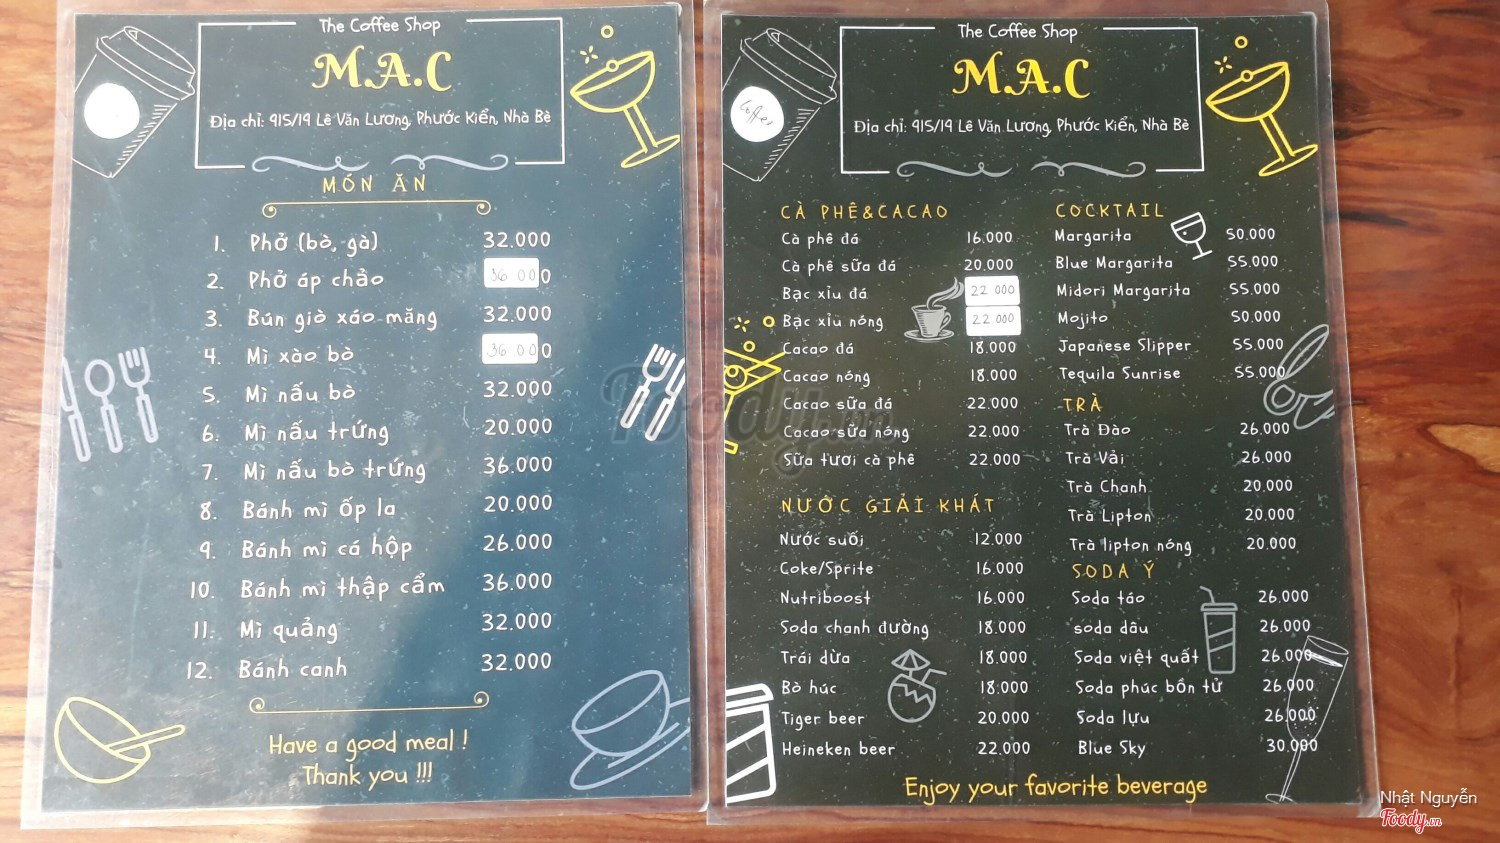 The Coffee Shop
M.A.C
Địa chỉ: 915/19 Lê Văn Lương, Phước Kiển, Nhà Bè
MÓN ĂN
1. Phở (bò, gà) 32.000
2. Phở áp chảo 36.000
3. Bún giò xáo măng 32.000
4. Mì xào bò 36.000
5. Mì nấu bò 32.000
6. Mì nấu trứng 20.000
7. Mì nấu bò trứng 36.000
8. Bánh mì ốp la 20.000
9. Bánh mì cá hộp 26.000
10. Bánh mì thập cẩm 36.000
11. Mì quảng 32.000
12. Bánh canh 32.000
Have a good meal !
Thank you !!!
The Coffee Shop
M.A.C
Địa chỉ: 915/19 Lê Văn Lương, Phước Kiển, Nhà Bè
Coffee
CÀ PHÊ&CACAO
Cà phê đá 16.000
Cà phê sữa đá 20.000
Bạc xỉu đá 22 000
Bạc xỉu nóng 22 000
Cacao đá 18.000
Cacao nóng 18.000
Cacao sữa đá 22.000
Cacao sữa nóng 22.000
Sữa tươi cà phê 22.000
NƯỚC GIẢI KHÁT
Nước suối 12.000
Coke/Sprite 16.000
Nutriboost 16.000
Soda chanh đường 18.000
Trái dừa 18.000
Bò húc 18.000
Tiger beer 20.000
Heineken beer 22.000
COCKTAIL
Margarita 50.000
Blue Margarita 55.000
Midori Margarita 55.000
Mojito 50.000
Japanese Slipper 55.000
Tequila Sunrise 55.000
TRÀ
Trà Đào 26.000
Trà Vải 26.000
Trà Chanh 20.000
Trà Lipton 20.000
Trà lipton nóng 20.000
SODA Ý
Soda táo 26.000
soda dâu 26.000
Soda việt quất 26.000
Soda phúc bồn tử 26.000
Soda lựu 26.000
Blue Sky 30.000
Enjoy your favorite beverage
Foody.vn
Nhật Nguyễn
Foody.vn